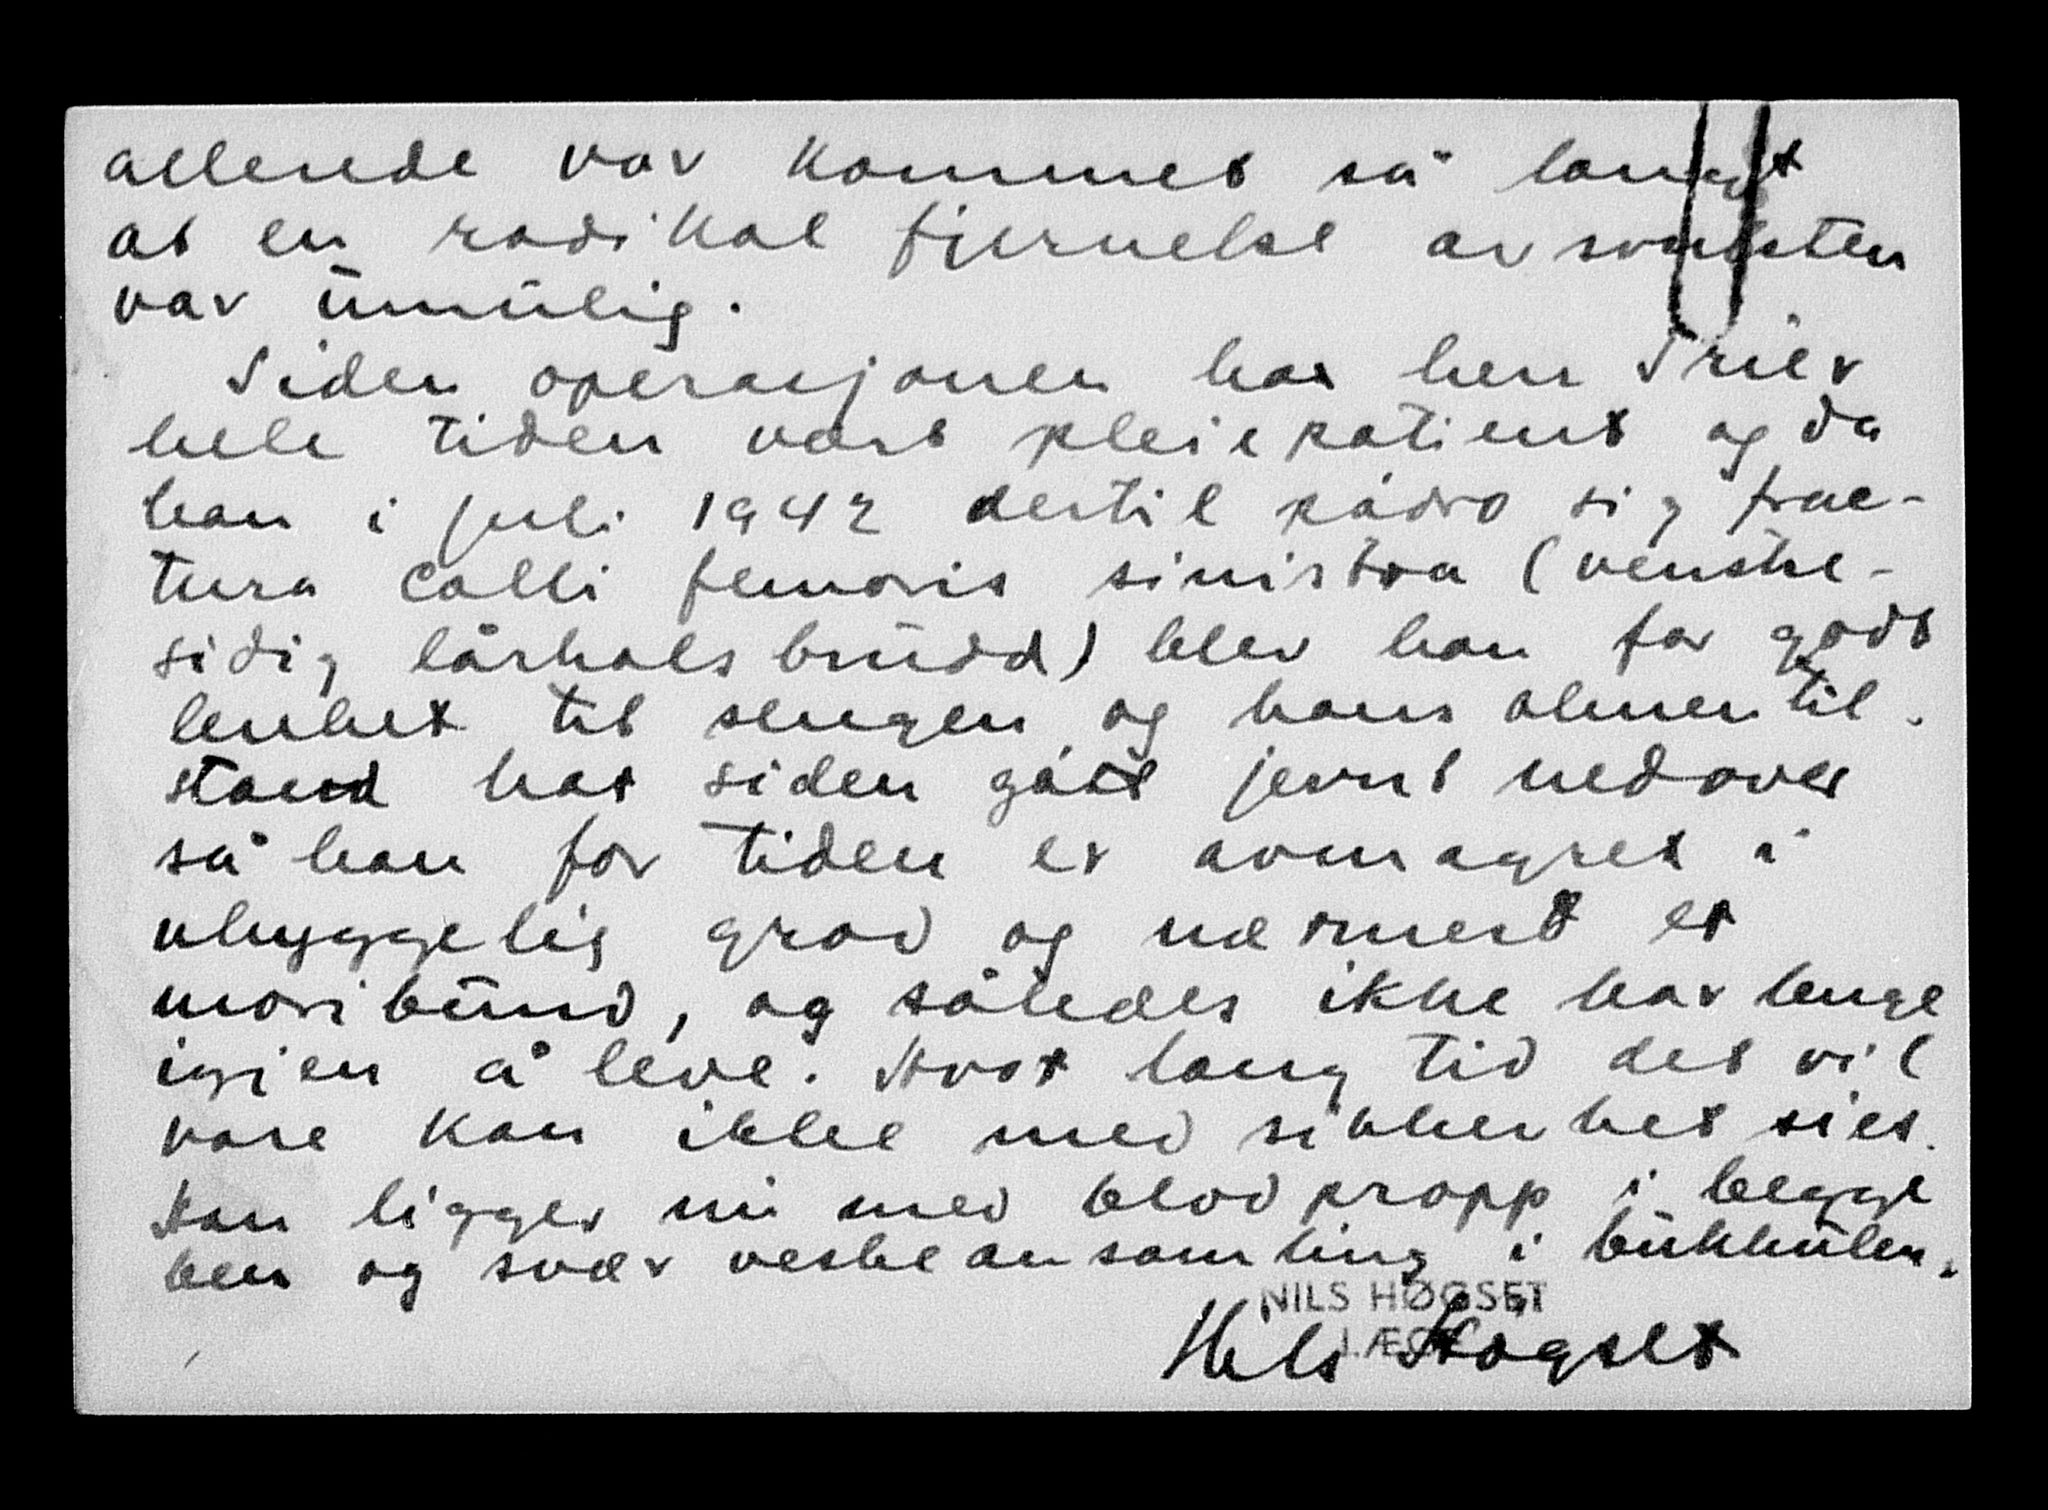 allerede var kommet så langt
at en radikal fjernelse av svulsten
var umulig.
Siden operasjonen har herr Trier
hele tiden vært pleiepatient og da
han i juli 1942 dertil pådro sig frac-
tura colli femoris sinistra (venstre-
sidig lårhalsbrudd) blev han for godt
lenket til sengen og hans almentil-
stand har siden gått jevnt nedover
så han for tiden er avmagret i
uhyggelig grad og nærmest er
moribund, og således ikke har lenge
igjen å leve. Hvor lang tid det vil
vare kan ikke med sikkerhet sies.
Han ligger nu med blodpropp i begge
ben og svær veskeansamling i bukhulen.
NILS HØGSET
LÆGE
Nils Høgset